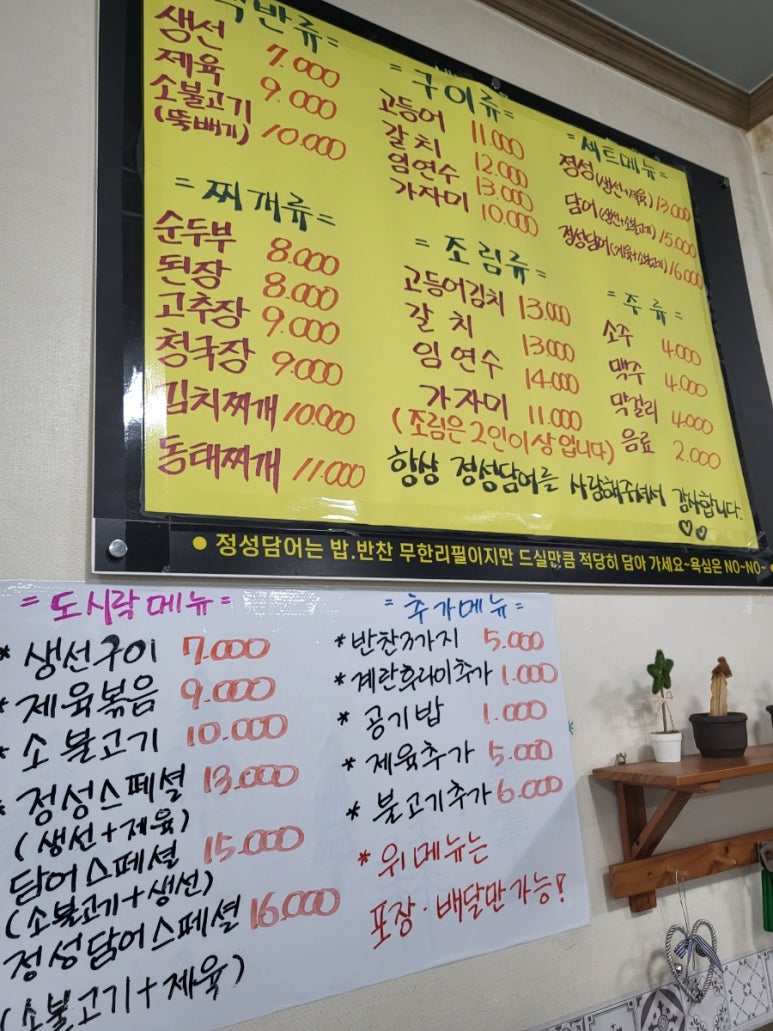 백반류=
생선 7.000
제육 9.000
소불고기 10.000
(뚝배기)
=찌개류=
순두부 8.000
된장 8.000
고추장 9.000
청국장 9.000
김치찌개 10.000
동태찌개 11.000
=구이류=
고등어 11.000
갈치 12.000
임연수 13.000
가자미 10.000
=조림류=
고등어김치 13.000
갈치 13.000
임연수 14.000
가자미 11.000
(조림은 2인이상입니다)
=세트메뉴=
정성(생선+제육) 13.000
담어(생선+소불고기) 15.000
정성담어(제육+소불고기) 16.000
=주류=
소주 4.000
맥주 4.000
막걸리 4.000
음료 2.000
항상 정성담어를 사랑해주셔서 감사합니다.
♡♡
● 정성담어는 밥.반찬 무한리필이지만 드실만큼 적당히 담아 가세요~욕심은 NO~NO~
=도시락메뉴=
* 생선구이 7.000
* 제육볶음 9.000
* 소불고기 10.000
* 정성스페셜 13.000
(생선+제육)
담어스페셜 15.000
(소불고기+생선)
정성담어스페셜 16.000
(소불고기+제육)
=추가메뉴=
* 반찬3가지 5.000
* 계란후라이추가 1.000
* 공기밥 1.000
* 제육추가 5.000
* 불고기추가 6.000
* 위메뉴는
포장·배달만가능!